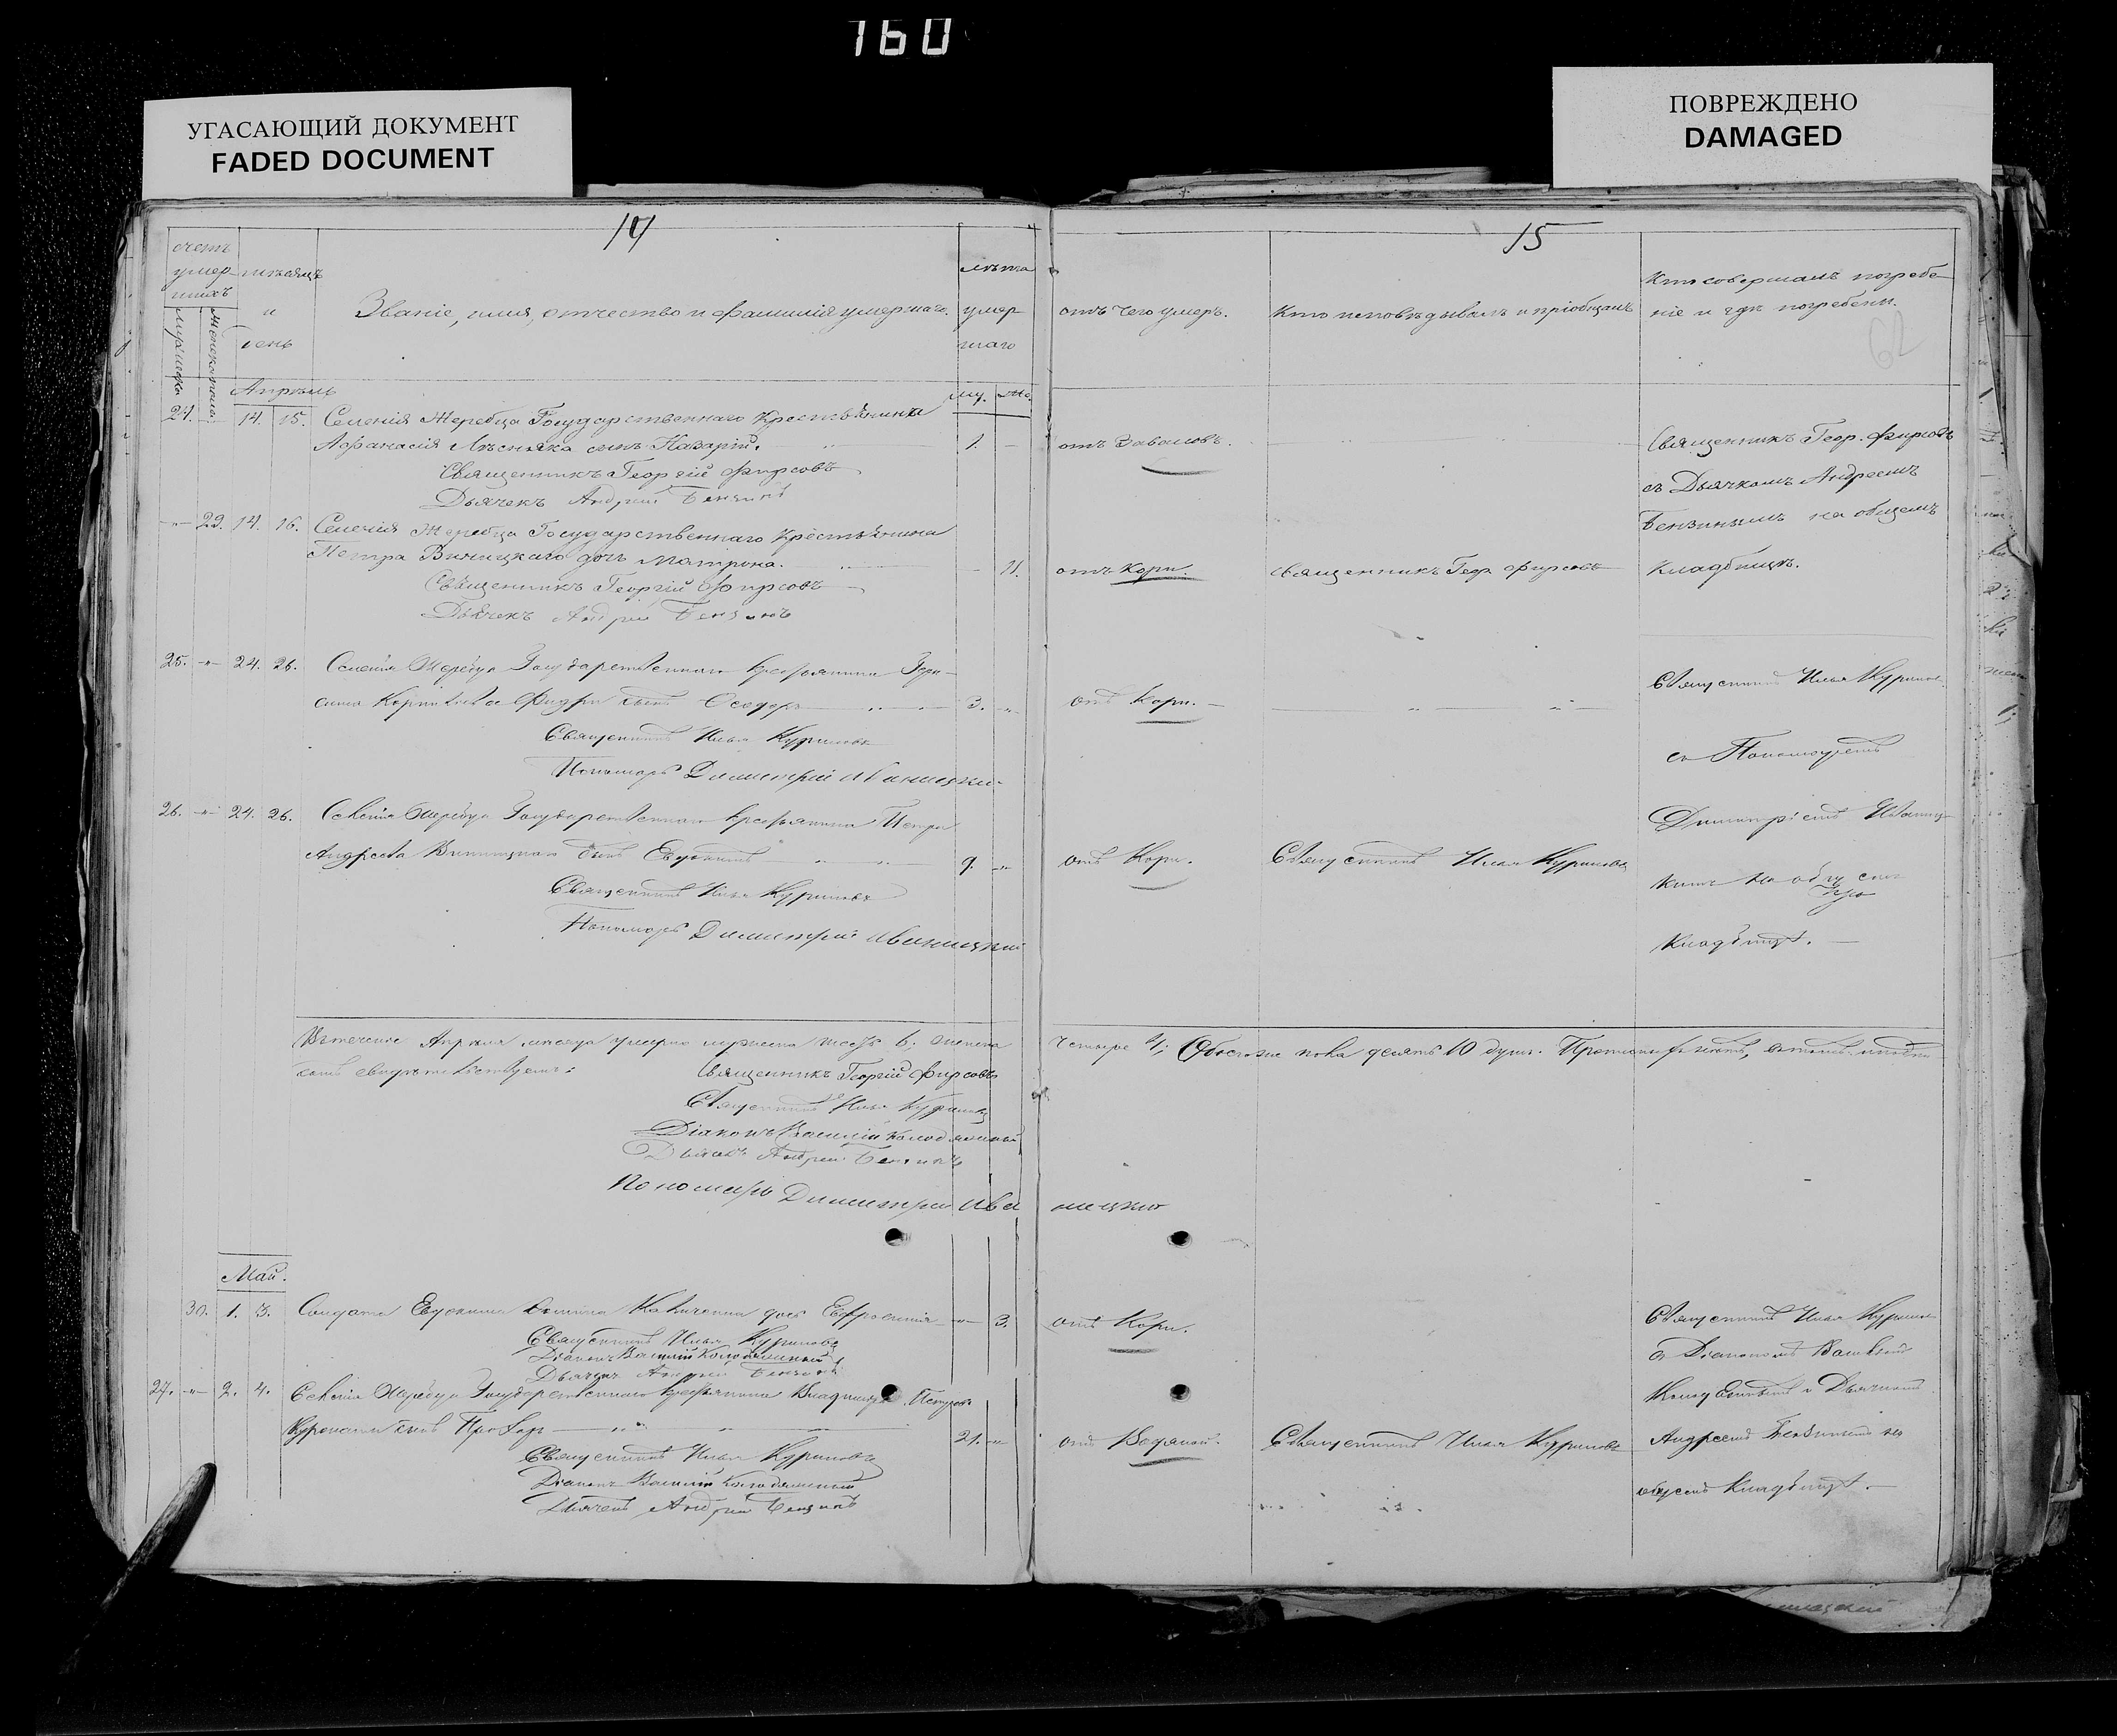 160
УГАСАЮЩИЙ ДОКУМЕНТ
FADED DOCUMENT
ПОВРЕЖДЕНО
DAMAGED
14
счетъ умершихъ
мужеска
женска пола
мѣсяцъ и день
Званіе, имя, отчество и фамилія умершаго.
лѣта умершаго
Апрѣль
му. же.
24. 14. 15. Селенія Жеребца Государственнаго Крестьянина
Афанасія Лѣсняка сынъ Назарій. 1.
Священникъ Георгій Фирсовъ
Дьячекъ Андрей Бензинъ
29. 14. 16. Селенія Жеребца Государственнаго Крестьянина
Петра Виницкаго дочь Матрона. 11.
Священникъ Георгій Фирсовъ
Дьячекъ Андрей Бензинъ
25. 24. 26. Селенія Жеребца Государственнаго Крестьянина
сынъ Ѳеодоръ 3.
Священникъ Илья Куриловъ
Пономарь Димитрій Иваницкій
26. 24. 26. Селенія Жеребца Государственнаго Крестьянина Петра
Андреева Винницкаго сынъ Евдокимъ 9.
Священникъ Илья Куриловъ
Пономарь Димитрій Иваницкій
Въ теченіе Апрѣля мѣсяца умерло мужеска шесть 6; женска
свидѣтельствуемъ:
Священникъ Георгій Фирсовъ
Священникъ Илья Куриловъ
Діаконъ Василій Колодяжный
Дьячекъ Андрей Бензинъ
Пономарь Димитрій Ива
Май.
30. 1. 3. Солдата Евдокима дочь Евфросинія 3.
Священникъ Илья Куриловъ
Діаконъ Василій Колодяжный
Дьячекъ Андрей Бензинъ
27. 2. 4. Селенія Жеребца Государственнаго Крестьянина Владиміра Петрова
сынъ Прохоръ 21.
Священникъ Илья Куриловъ
Діаконъ Василій Колодяжный
Дьячекъ Андрей Бензинъ
15
отъ чего умеръ.
Кто исповѣдывалъ и пріобщалъ
Кто совершалъ погребе
ніе и гдѣ погребены.
62
отъ Заваловъ.
Священникъ Геор. Фирсовъ
съ Дьячкомъ Андреемъ
Бензинымъ на общемъ
отъ Кори.
Священникъ Геор. Фирсовъ
Кладбищѣ.
Священникъ Илья Куриловъ
отъ Кори.
съ Пономаремъ
Димитріемъ Иваниц
отъ Кори.
Священникъ Илья Куриловъ
кимъ на общемъ
Кладбищѣ.
четыре 4; Обоего же пола десять 10 душъ.
ницкій
отъ Кори.
Священникъ Илья Куриловъ
съ Діакономъ Василіемъ
и Дьячкомъ
отъ Водяной.
Священникъ Илья Куриловъ
Андреемъ Бензинымъ на
общемъ Кладбищѣ.